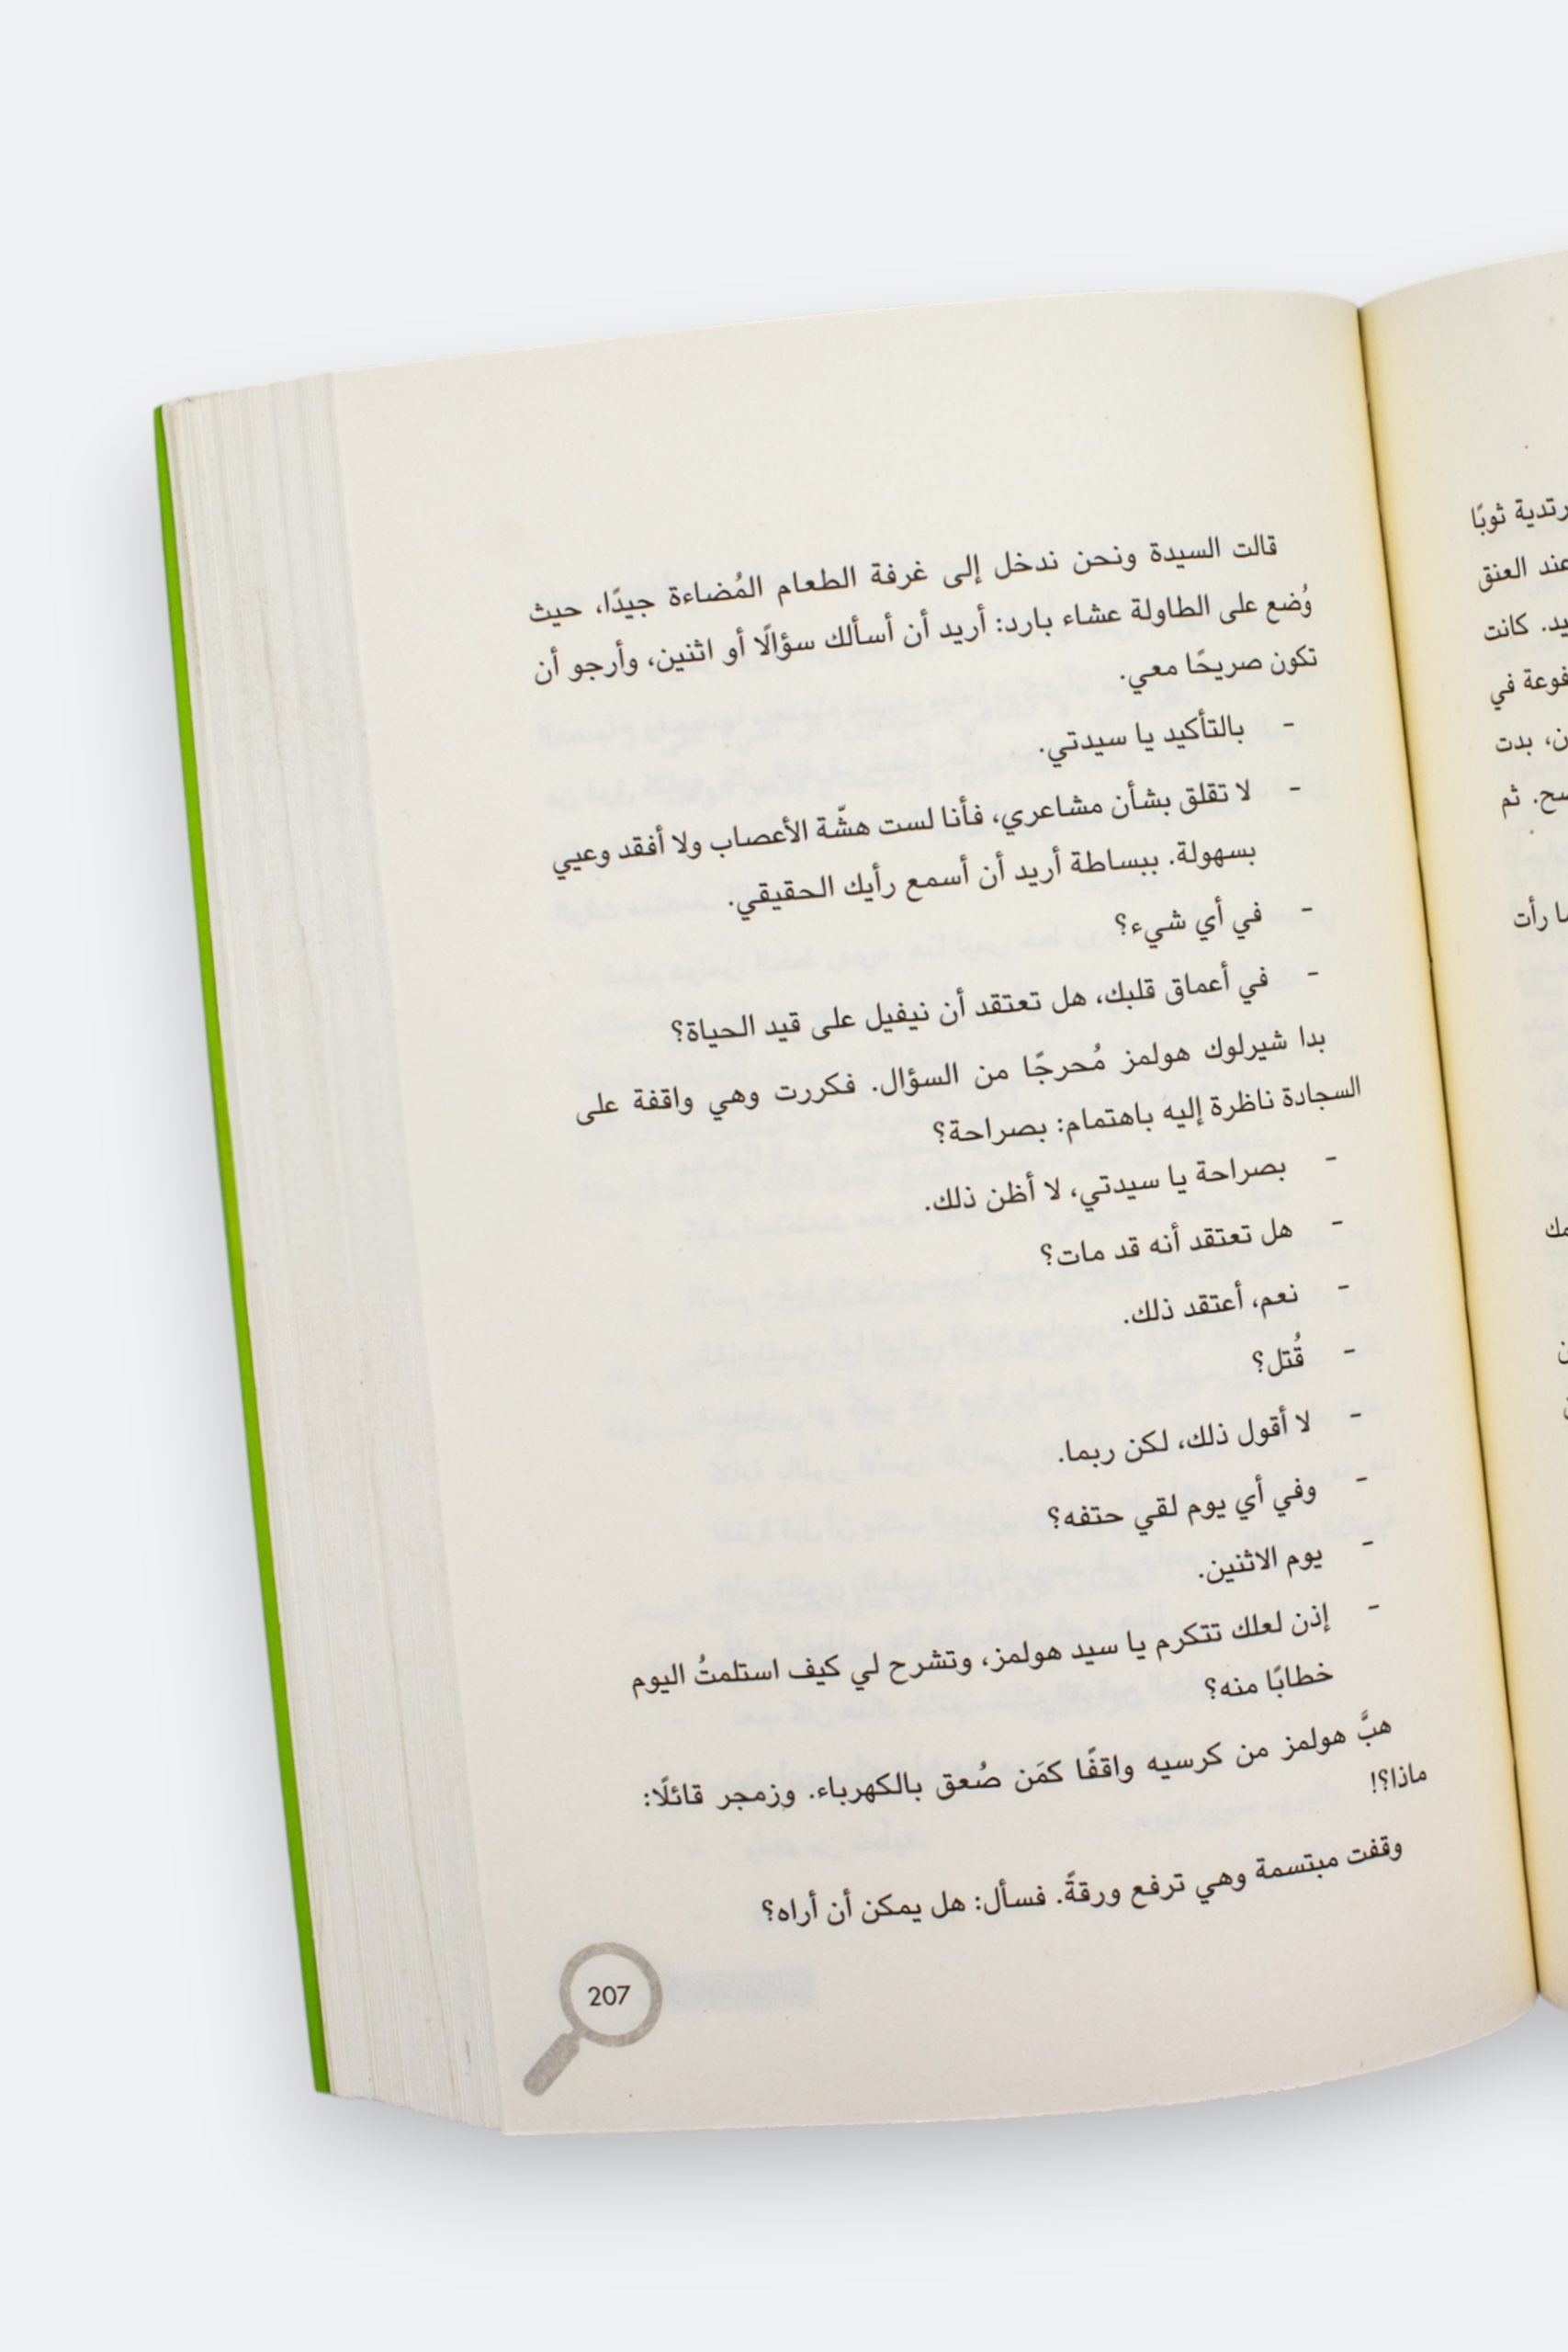 قالت السيدة ونحن ندخل إلى غرفة الطعام المُضاءة جيدًا، حيث
وُضع على الطاولة عشاء بارد: أريد أن أسألك سؤالًا أو اثنين، وأرجو أن
تكون صريحًا معي.
- بالتأكيد يا سيدتي.
- لا تقلق بشأن مشاعري، فأنا لست هشّة الأعصاب ولا أفقد وعيي
بسهولة. ببساطة أريد أن أسمع رأيك الحقيقي.
- في أي شيء؟
- في أعماق قلبك، هل تعتقد أن نيفيل على قيد الحياة؟
بدا شيرلوك هولمز مُحرجًا من السؤال. فكررت وهي واقفة على
السجادة ناظرة إليه باهتمام: بصراحة؟
- بصراحة يا سيدتي، لا أظن ذلك.
- هل تعتقد أنه قد مات؟
- نعم، أعتقد ذلك.
- قُتل؟
- لا أقول ذلك، لكن ربما.
- وفي أي يوم لقي حتفه؟
- يوم الاثنين.
- إذن لعلك تتكرم يا سيد هولمز، وتشرح لي كيف استلمتُ اليوم
خطابًا منه؟
هبَّ هولمز من كرسيه واقفًا كمَن صُعق بالكهرباء. وزمجر قائلًا:
ماذا؟!
وقفت مبتسمة وهي ترفع ورقةً. فسأل: هل يمكن أن أراه؟
207
ثوبًا
عند العنق
كانت
في
بدت
ثم
رأت